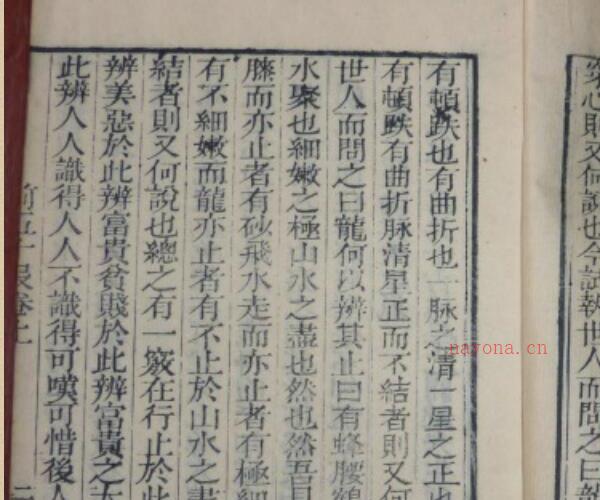 窾心則又何說也今試執世人而問之曰龍
有頓跌也有曲折也一脉之清一星之正也
有頓跌有曲折脉清星正而不結者則又何
世人而問之曰龍何以辨其止曰有蜂腰鶴
水聚也細嫩之極山水之盡也然也然吾見
而亦止者有砂飛水走而亦止者有極細
有不細嫩而龍亦止者有不止於山水之盡
結者則又何說也總之有一竅在行止於此
辨美惡於此辨富貴貧賤於此辨富貴之大
此辨人人識得人人不識得可嘆可惜後人
卷上
nayona.cn